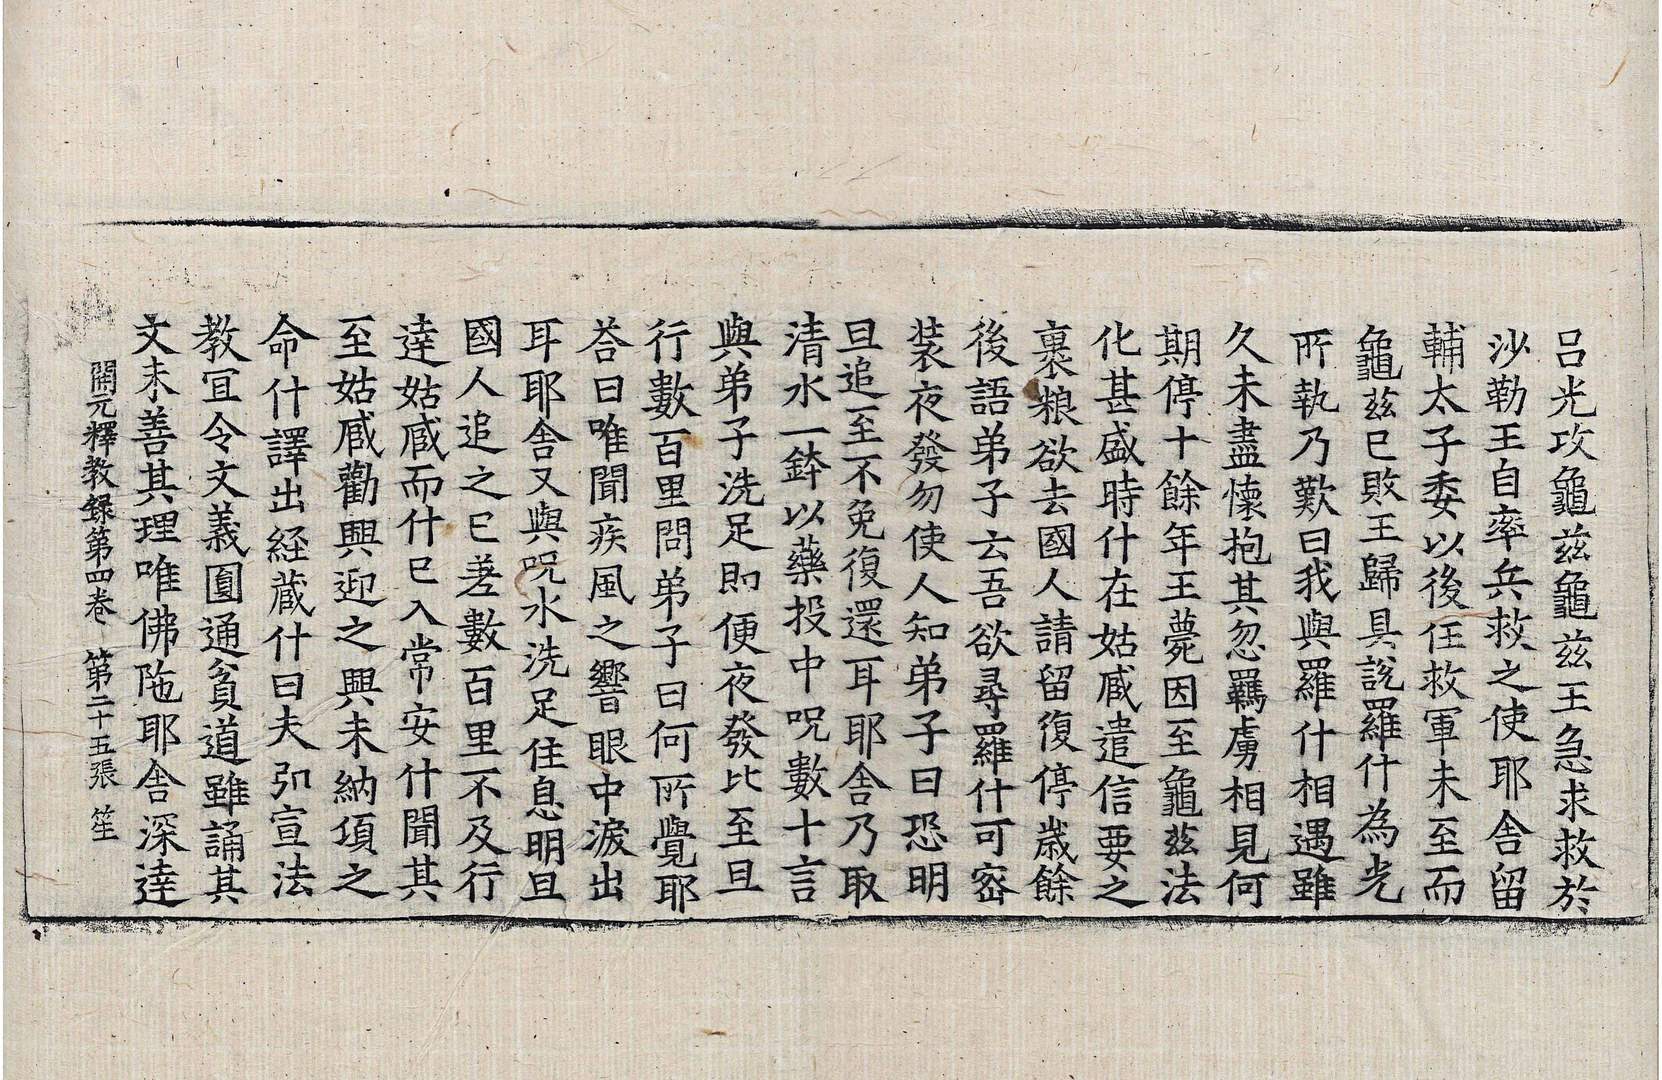 呂光攻龜茲龜茲王急求救於
沙勒王自率兵救之使耶舍留
輔太子委以後任救軍未至而
龜茲已敗王歸具說羅什為光
所執乃歎曰我與羅什相遇雖
久未盡懷抱其忽羈虜相見何
期停十餘年王薨因至龜茲法
化甚盛時什在姑臧遣信要之
裹粮欲去國人請留復停歲餘
後語弟子云吾欲尋羅什可密
装夜發勿使人知弟子曰恐明
旦追至不免復還耳耶舍乃取
清水一鉢以藥投中呪數十言
與弟子洗足即便夜發比至旦
行數百里問弟子曰何所覺耶
荅曰唯聞疾風之響眼中淚出
耳耶舍又與呪水洗足住息明旦
國人追之已差數百里不及行
達姑臧而什已入常安什聞其
至姑臧勸興迎之興未納頃之
命什譯出経藏什曰夫弘宣法
教冝令文義圓通貧道雖誦其
文未善其理唯佛陁耶舍深達
開元釋教錄第四卷 第二十五張 笙